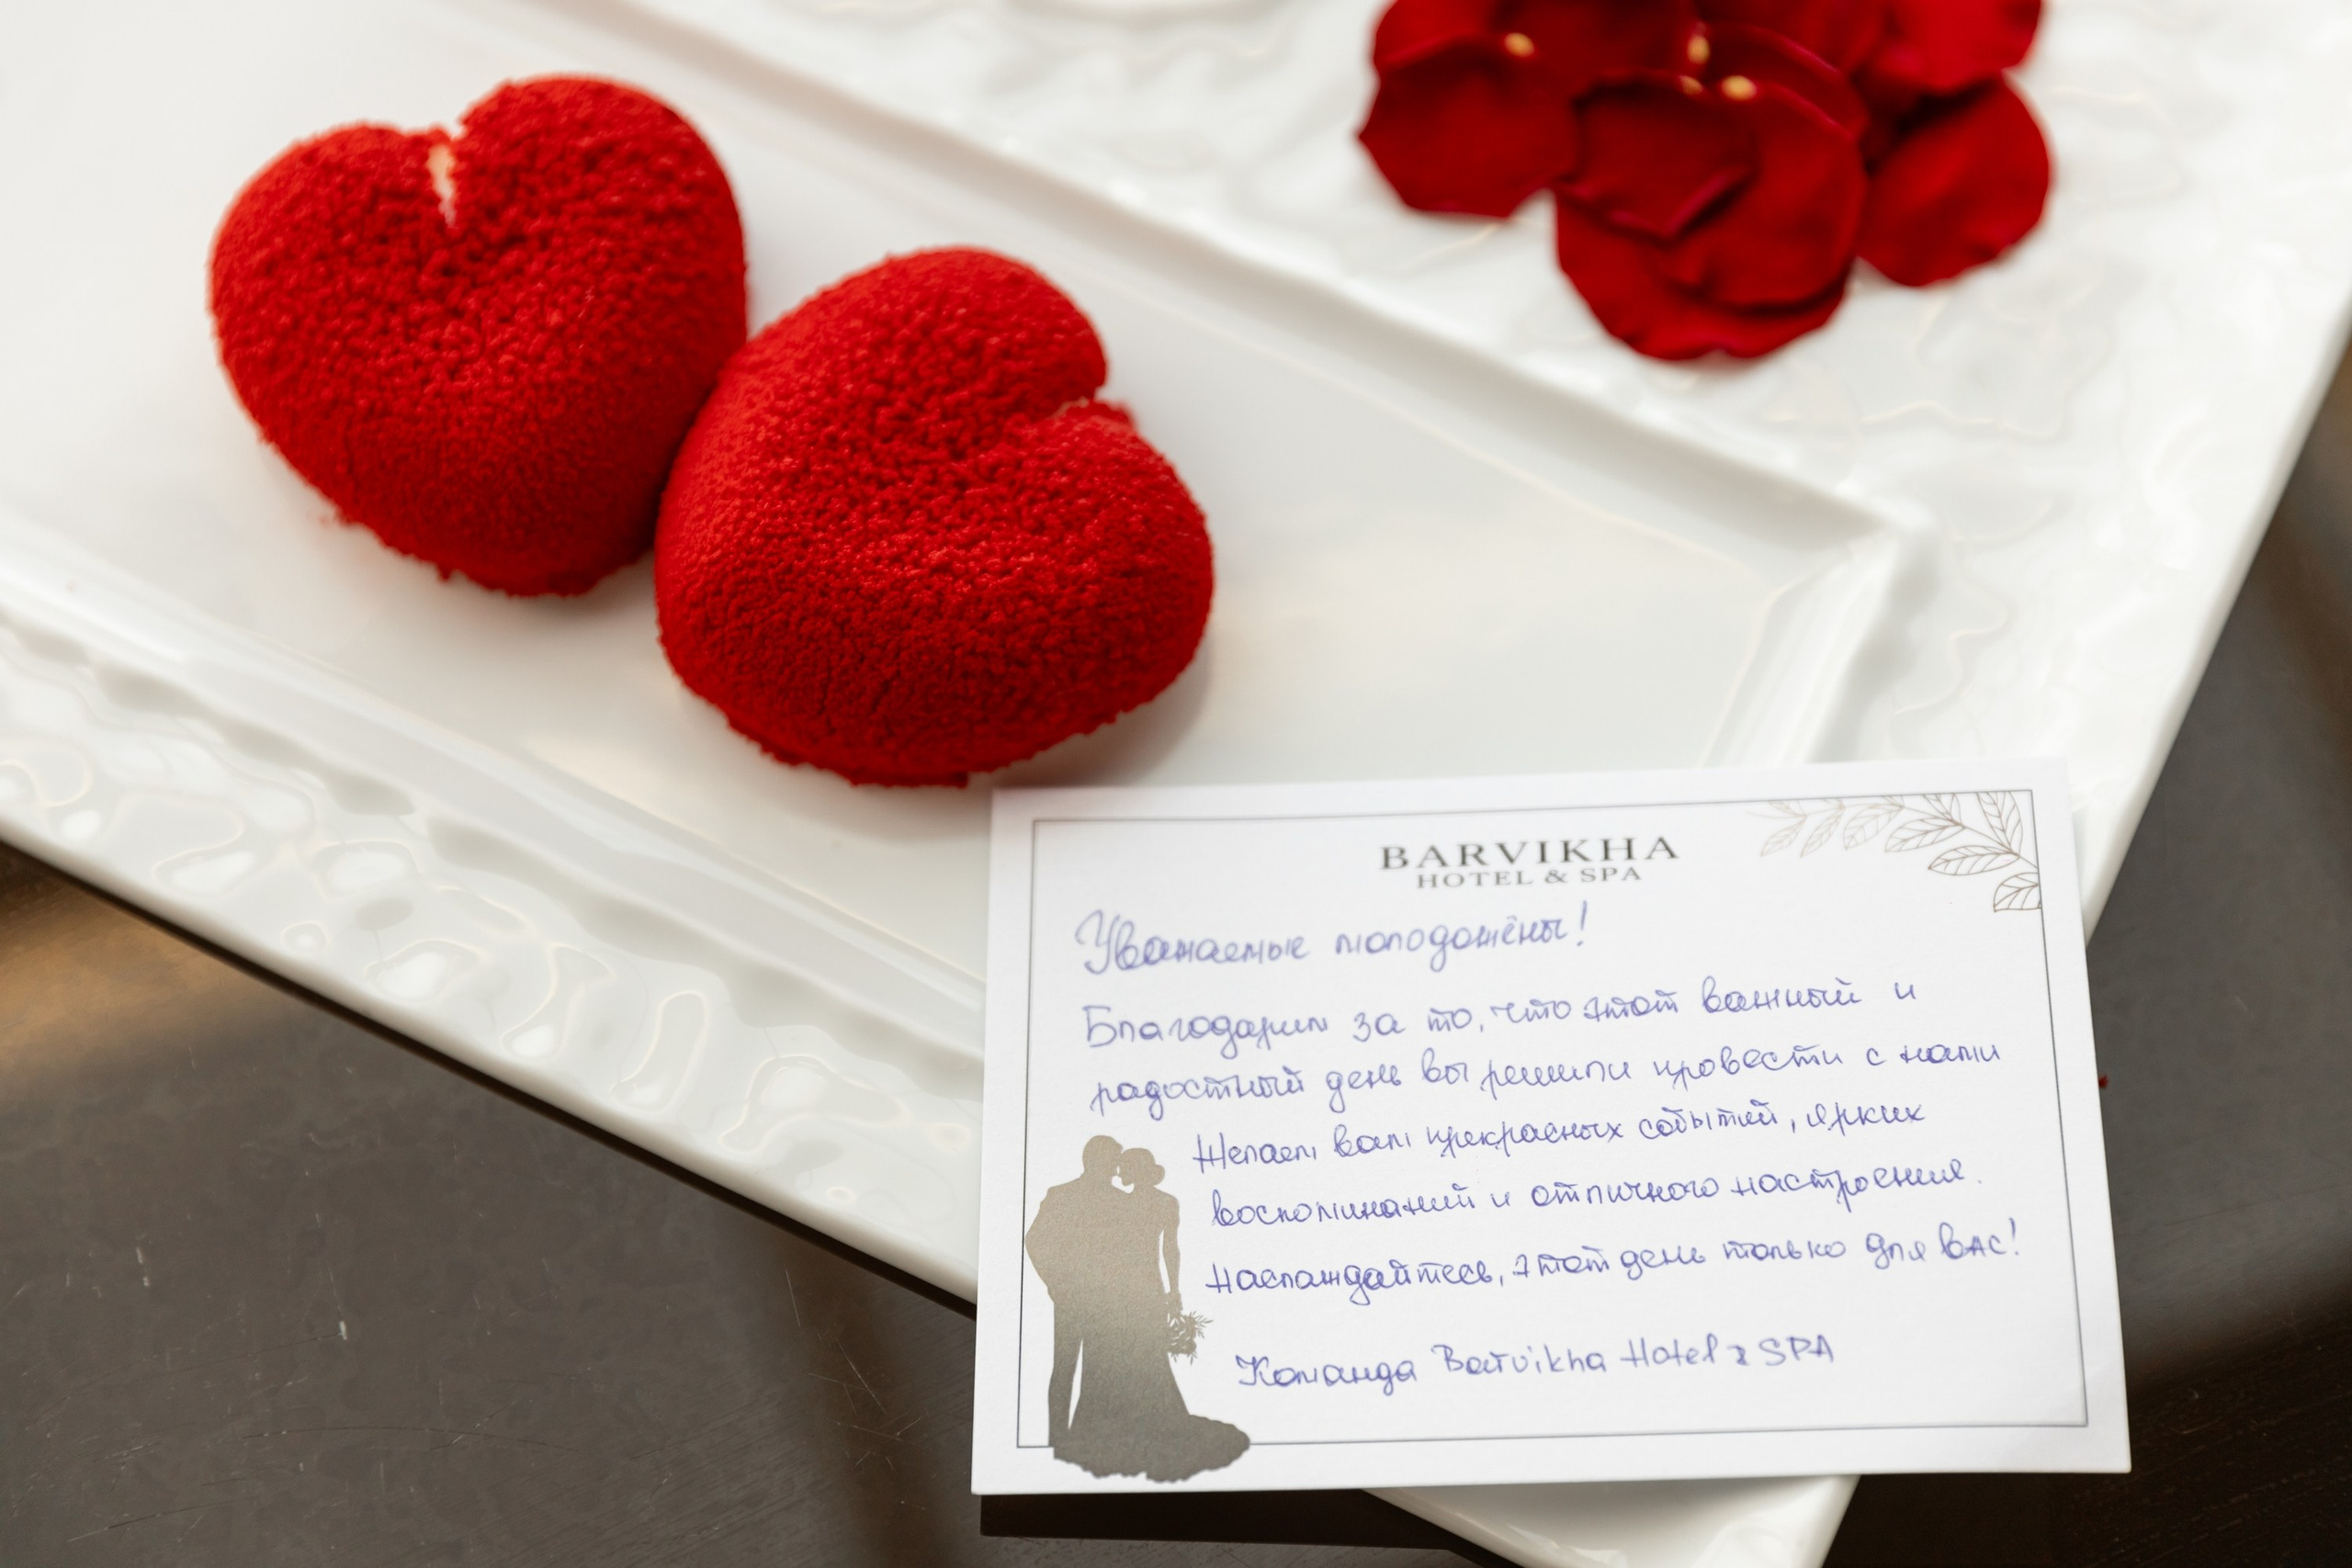 BARVIKHA
HOTEL & SPA
Уважаемые молодожёны!
Благодарим за то, что этот важный и
радостный день вы решили провести с нами
Желаем вам прекрасных событий, ярких
воспоминаний и отличного настроения.
Наслаждайтесь, этот день только для вас!
Команда Barvikha Hotel & SPA